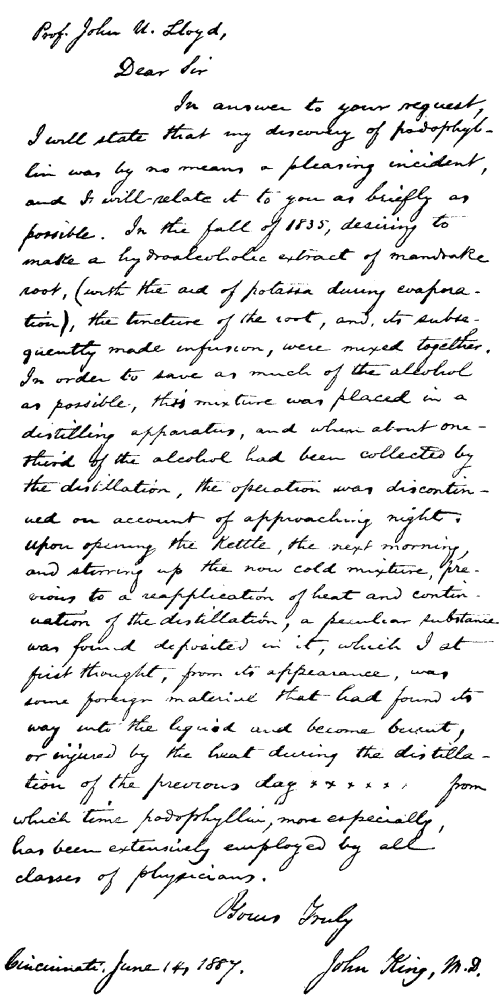 Prof. John U. Lloyd,
Dear Sir
In answer to your request,
I will state that my discovery of podophyl-
lin was by no means a pleasing incident,
and I will relate it to you as briefly as
possible. In the fall of 1835, desiring to
make a hydroalcoholic extract of mandrake
root, (with the aid of potassa during evapora-
tion), the tincture of the root, and, its subse-
quently made infusion, were mixed together.
In order to save as much of the alcohol
as possible, this mixture was placed in a
distilling apparatus, and when about one-
third of the alcohol had been collected by
the distillation, the operation was discontin-
ued on account of approaching night.
Upon opening the Kettle, the next morning,
and stirring up the now cold mixture, pre-
vious to a reapplication of heat and contin-
uation of the distillation, a peculiar substance
was found deposited in it, which I at
first thought, from its appearance, was
some foreign material that had found its
way into the liquid and become burnt,
or injured by the heat during the distilla-
tion of the previous day × × × × × from
which time podophyllin, more especially,
has been extensively employed by all
classes of physicians.
Yours Truly
Cincinnati, June 14, 1887. John King, M.D.